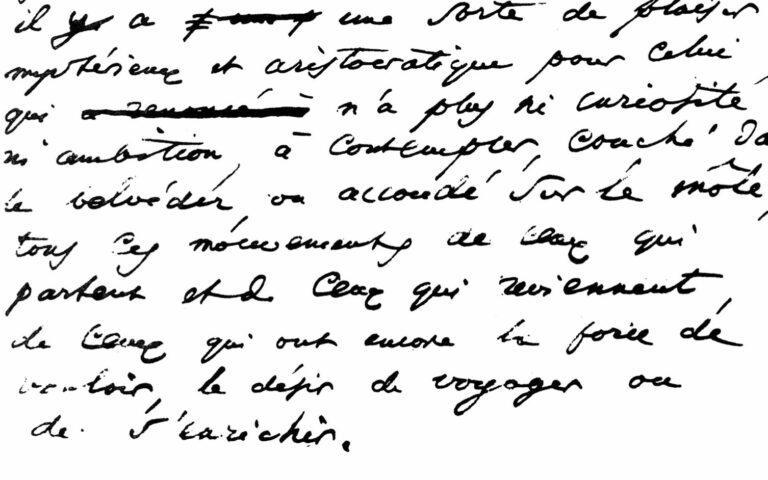 il y a une sorte de plaisir
mystérieux et aristocratique pour celui
qui n'a plus ni curiosité
ni ambition, à contempler, couché da
le belvédér ou accoudé sur le môle,
tous ces mouvements de ceux qui
partent et de ceux qui reviennent,
de ceux qui ont encore la force de
vouloir, le désir de voyager ou
de s'enrichir.